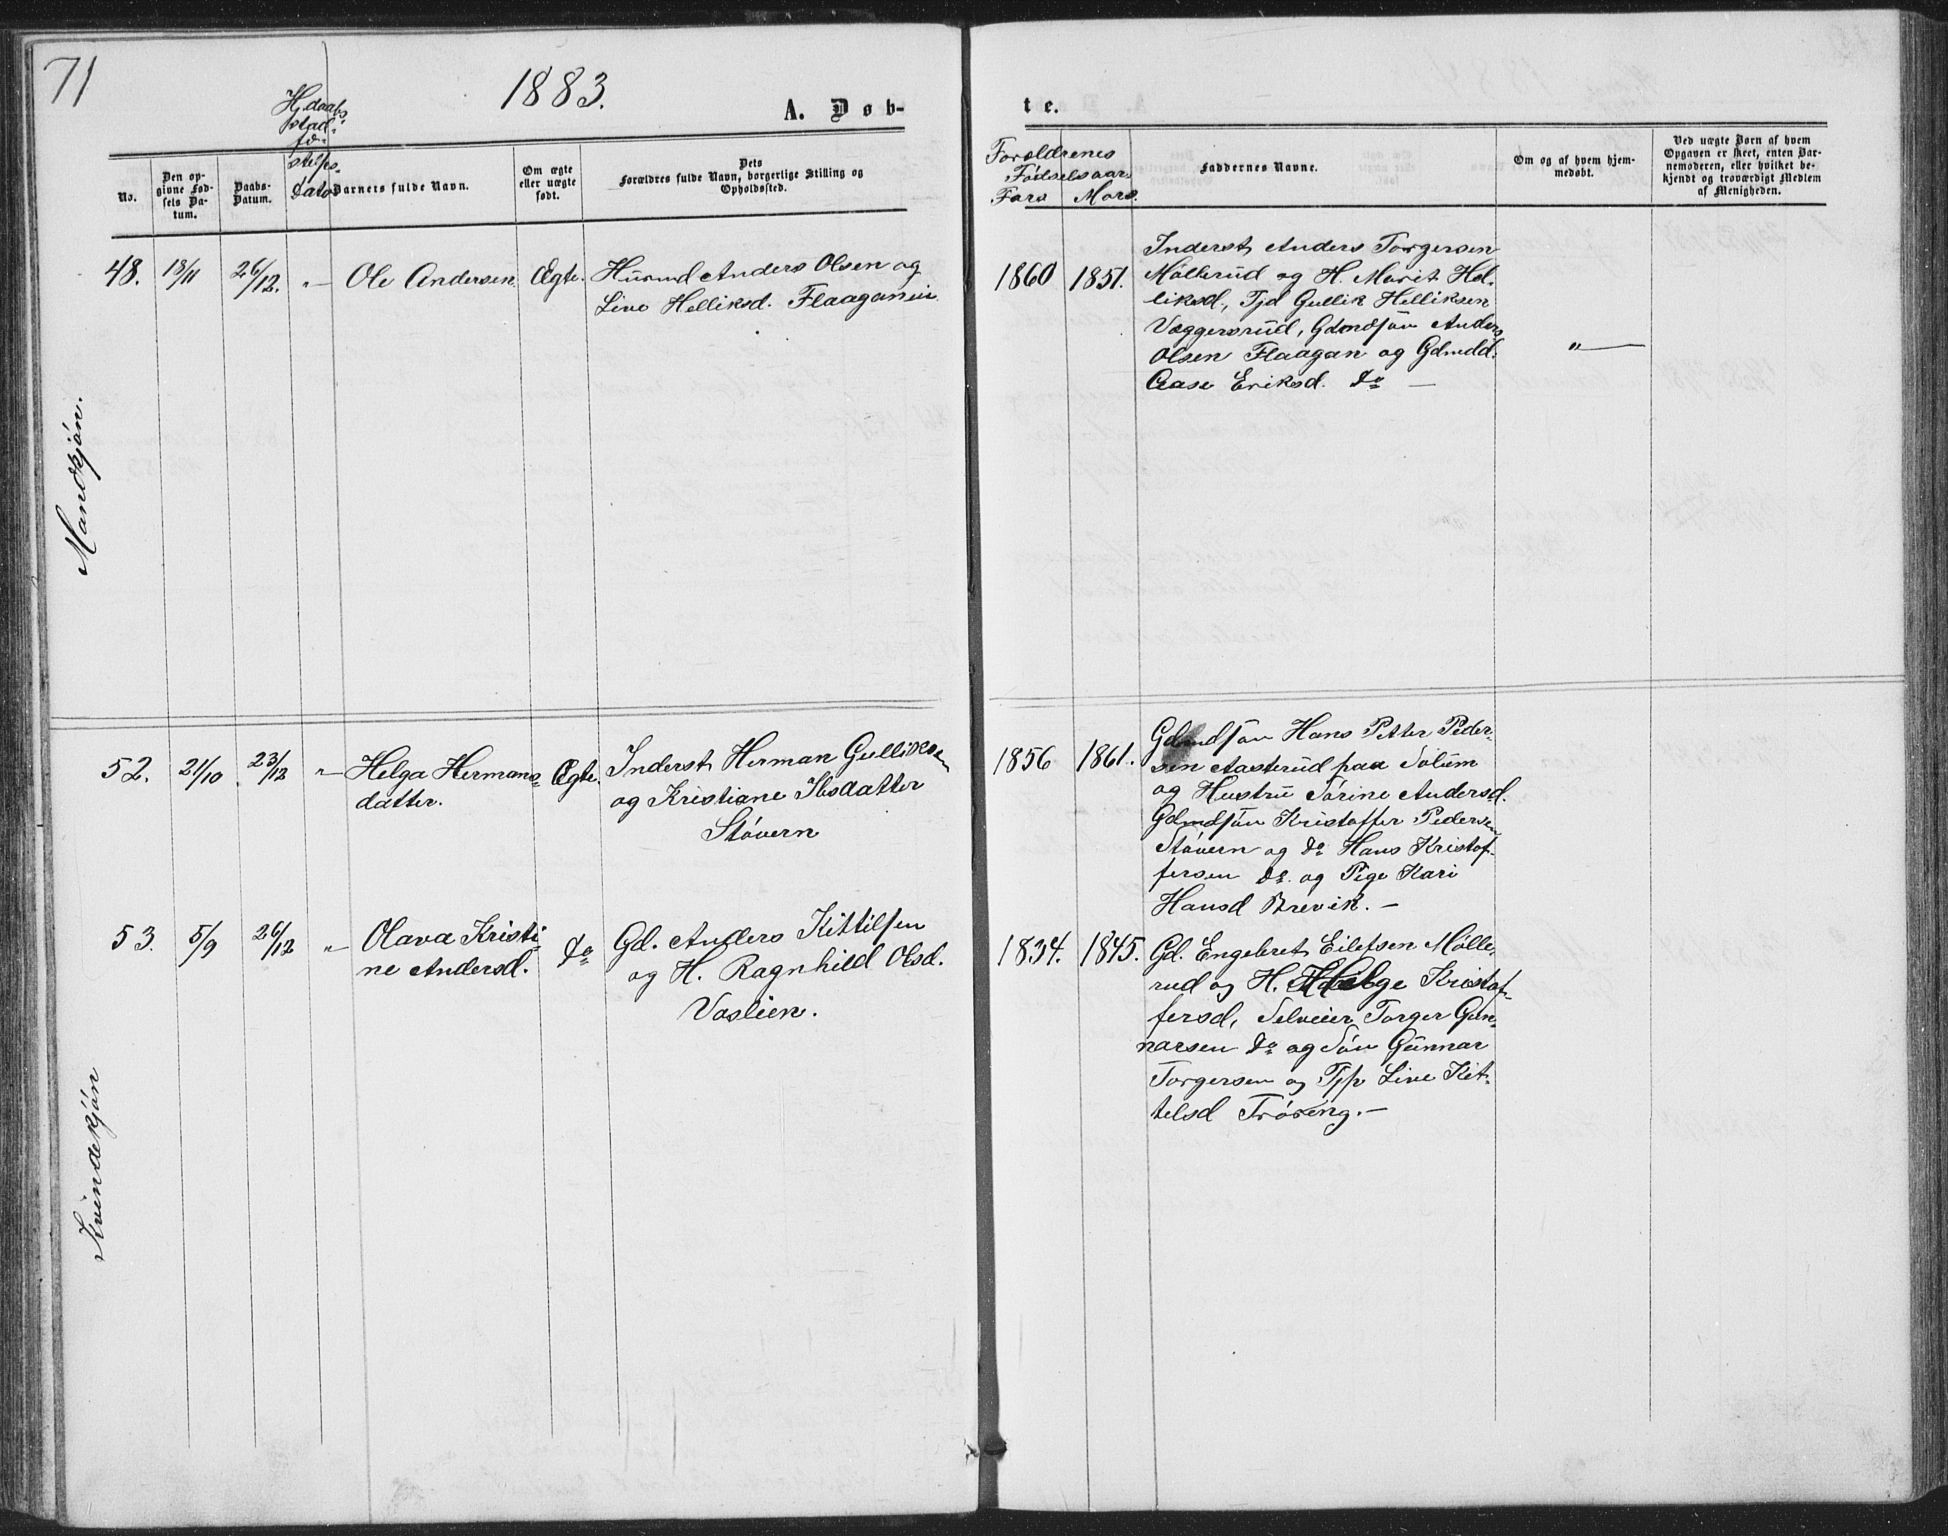 71
1883.
A. Døb-
te.
Hdaabs-
stad-
fæ-
stelses-
Dato
No.
Den op-
givne Fød-
sels Da-
tum.
Daabs-
Datum.
Barnets fulde Navn.
Om ægte
eller uægte
født.
Dets
Forældres fulde Navn, borgerlige Stilling og
Opholdssted.
Forældrenes
Fødselsaar
Fars Mors.
Faddernes Navne.
Om og af hvem hjem-
medøbt.
Ved uægte Børn af hvem
Opgaven er skeet, enten Bar-
nemoderen, eller hvilket be-
kjendt og troværdigt Medlem
af Menigheden.
Mandkjøn.
48. 13/11 26/12. "— Ole Andersen Ægte. Husmd Anders Olsen og
Live Helliksd. Flaaganeie
1860 1851.
Inderst Anders Torgersen
Møllerud og H. Marit Hel-
liksd., Tjd Gullik Helliksen
Væggersrud, Gdmdsøn Anders
Olsen Flaagan og Gdmdd.
Aase Eriksd. do —
"—
52. 21/10 23/12 "— Helga Hermans- Ægte. Inderst Herman Gulliksen
datter. og Kristiane Ibsdatter
Støvern
1856 1861.
Gdmdsøn Hans Petter Peder-
sen Aasterud paa Solum
og Hustru Sørine Andersd.
Gdmdsøn Kristoffer Pedersen
Støvern og do Hans Kristof-
fersen do. og Pige Kari
Hansd Brevik. —
Kvindekjøn
53. 5/9 26/12 "— Olava Kristi- do Gd. Anders Kittilsen
ne Andersd. og H. Ragnhild Olsd.
Vaslien.
1834. 1845.
Gd. Engebret Eilefsen Mølle-
rud og H. Helge Kristof-
fersd, Selveier Torger Gun-
narsen do og Søn Gunnar
Torgersen og Tjp Live Kit-
telsd Trøeng. —